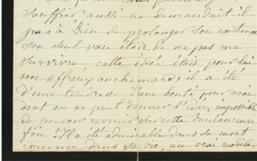 Souffrir aussi ne demandait-il
pas à Dieu de prolonger son existence
Son seul vœu était de ne pas me
survivre cette idée était pour lui
un affreux cauchemard il a été
d'une tendresse d'une bonté pour moi
dont on ne peut donner l'idée, impossible
de pouvoir revenir sur cette douloureuse
fin. Il a été admirable dans sa mort
comme dans sa vie, un vrai